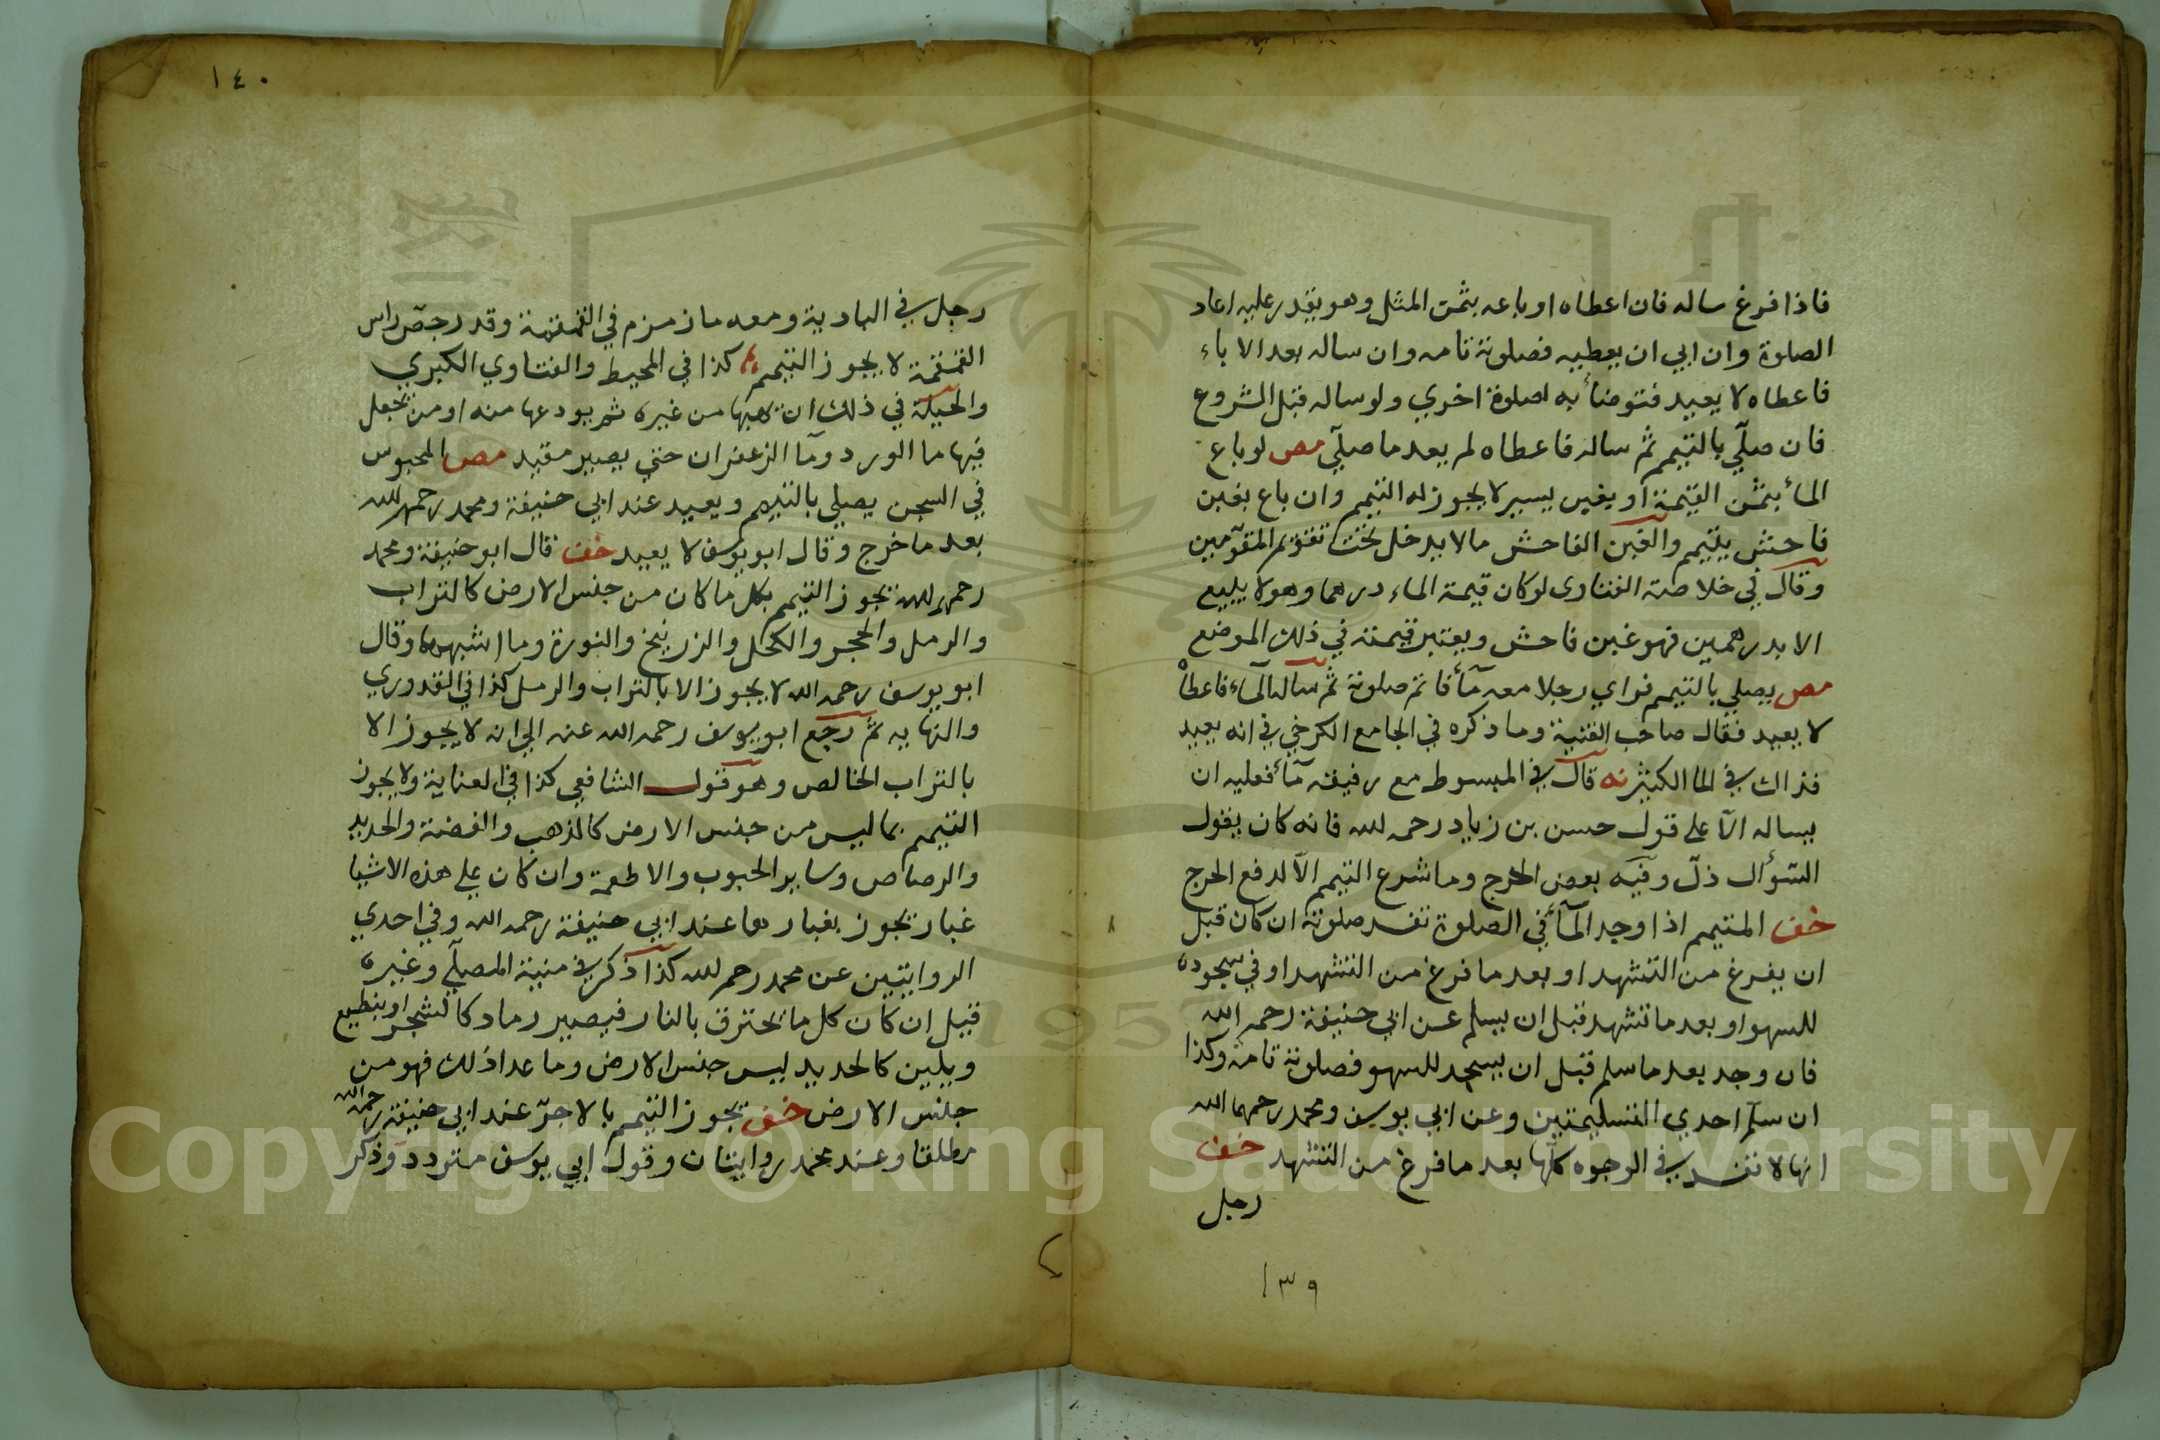 فاذا فرغ ساله فان اعطاه او باعه بثمن المثل وهو يقدر عليه اعاد
الصلوة وان ابي ان يعطيه فصلوته تامه وان ساله بعد الاباء
فاعطاه لا يعيد فتوضأ به لصلوة اخري ولو ساله قبل الشروع
فان صلّي بالتيمم ثم ساله فاعطاه لم يعد ما صلّي مص لو باع
الماء بثمن القيمة او بغبن يسير لا يجوز له التيمم وان باع بغبن
فاحش يتيمم والغبن الفاحش مالا يدخل تحت تقويم المقوّمين
وقال في خلاصة الفتاوى لو كان قيمة الماء درهما وهو لا يبيع
الا بدرهمين فهو غبن فاحش ويعتبر قيمته في ذلك الموضع
مص يصلي بالتيمم فراي رجلا معه مآء فاتم صلوته ثم ساله المآء فاعطاه
لا يعيد فقال صاحب القنية وما ذكره في الجامع الكرخي في انه يعيد
فذاك في الما الكثير نه قال في المبسوط مع رفيقه مآء فعليه ان
يساله الّا علي قول حسن بن زياد رحمه لله فانه كان يقول
السّؤال ذلّ وفيه بعض الحرج وما شرع التيمم الّا لدفع الحرج
خف المتيمم اذا وجد المآء في الصلوة تفسد صلوته ان كان قبل
ان يفرغ من التشهد او بعد ما فرغ من التشهد او في سجوده
للسهو او بعد ما تشهد قبل ان يسلم عن ابي حنيفة رحمه الله
فان وجد بعد ما سلم قبل ان يسجد للسهو فصلوته تامة وكذا
ان سلّم احدي التسليمتين وعن ابي يوسف ومحمد رحمهما الله
انها لا تفسد في الوجوه كلّها بعد ما فرغ من التشهد خف
رجل
١٣٩
١٤٠
رجل في البادية ومعه ما زمزم في القمقمة وقد رصّص راس
القمقمة لا يجوز التيمم كذا في المحيط والفتاوي الكبري
والحيلة في ذلك ان يهبها من غيره ثم يودعها منه او من يجعل
فيها ما الورد ومآ الزعفران حتي يصير مقيد مص المحبوس
في السجن يصلي بالتيمم ويعيد عند ابي حنيفة ومحمد رحمهم لله
بعد ما خرج وقال ابو يوسف لا يعيد خف قال ابو حنيفة ومحمد
رحمهم لله تجوز التيمم بكل ما كان من جنس الارض كالتراب
والرمل والحجر والكحل والزرنيخ والنورة وما اشبهها وقال
ابو يوسف رحمه الله لا يجوز الا بالتراب والرمل كذا في القدوري
والنهايه ثم رجع ابو يوسف رحمه الله عنه الي انه لا يجوز الا
بالتراب الخالص وهو قول الشافعي كذا في العناية ولا يجوز
التيمم بما ليس من جنس الارض كالذهب والفضة والحديد
والرصاص وساير الحبوب والاطعمة وان كان علي هذه الاشيا
غبار تجوز بغبارها عند ابي حنيفة رحمه الله وفي احدي
الروايتين عن محمد رحمه لله كذا ذكر في منية المصلّي وغيره
قيل ان كان كل ما يحترق بالنار فيصير رماد كالشجر او ينطبع
ويلين كالحديد ليس جنس الارض وما عدا ذلك فهو من
جنس الارض خف تجوز التيمم بالاجرّ عند ابي حنيفة رحمه الله
مطلقا وعند محمد روايتان وقول ابي يوسف متردد وذكر
Copyright © King Saud University
1957